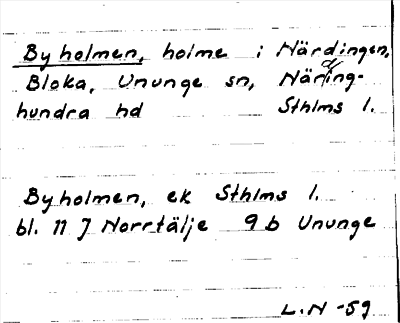 Byholmen, holme i Närdingen,
Bloka, Ununge sn, Närding-
hundra hd Sthlms l.
Byholmen, ek Sthlms l.
bl. 11 J Norrtälje 9 b Ununge
L.N -59